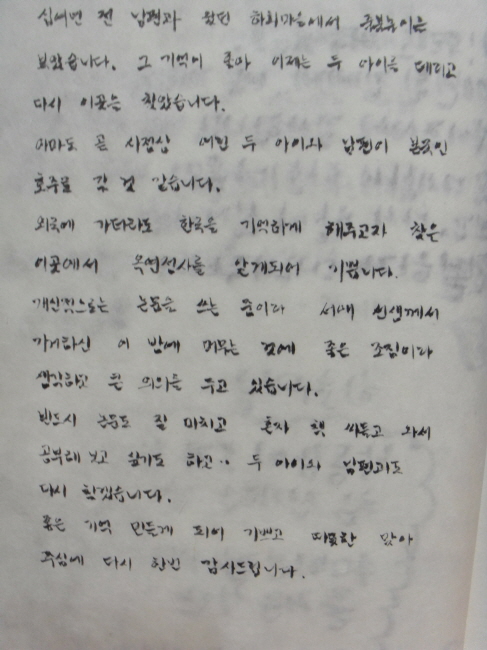 십여년 전 남편과 왔던 하회마을에서 줄불놀이를
보았습니다. 그 기억이 좋아 이제는 두 아이를 데리고
다시 이곳을 찾았습니다.
아마도 곧 시점상 어린 두 아이와 남편이 본국인
호주로 갈 것 같습니다.
외국에 가더라도 한국을 기억하게 해주고자 찾은
이곳에서 옥연정사를 알게되어 기쁩니다.
개인적으로는 논문을 쓰는 중이라 서애 선생께서
기거하신 이 방에 머무는 것에 좋은 조짐이라
생각하고 큰 의의를 두고 있습니다.
반드시 논문도 잘 마치고 혼자 책 싸들고 와서
공부해 보고 싶기도 하고.. 두 아이와 남편과도
다시 찾겠습니다.
좋은 기억 만든게 되어 기쁘고 따뜻한 맞아
주심에 다시 한번 감사드립니다.